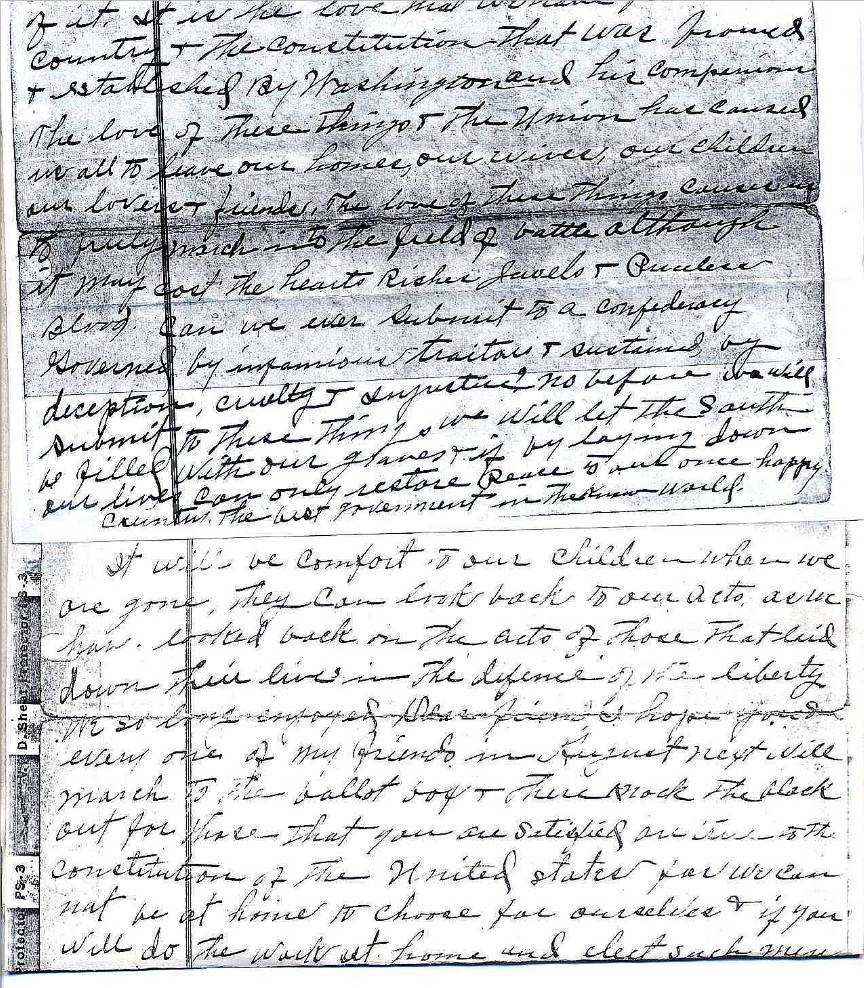 of it. It is the love that we have
country & the constitution that was framed
& established By Washington and his companions
The love of these things & the Union has caused
us all to leave our homes, our wives, our children
our lovers & friends. The love of these things causes us
to truly march into the field of battle although
it may cost the hearts Risher Juvels & Priceless
Blood. Can we ever submit to a confederacy
Governed by infamious traitors & sustained by
deception, cruelty & injustice? no before we will
submit to these things we will let the South
be filled with our graves & if by laying down
our lives can only restore Peace to our once happy
country. the best government in the known World.
It will be comfort to our children when we
are gone, they can look back to our acts, as we
have looked back on the acts of those that laid
down their lives in the defence of the liberty
we so long enjoyed Dear friend I hope you &
every one of my friends in August next will
march to the ballot box & there knock the black
out for those that you are satisfied are true to the
constitution of the United States for we can
not be at home to choose for ourselves & if you
will do the work at home and elect such men
D. Shear Transcript
PS-3
Protecto
PS-3